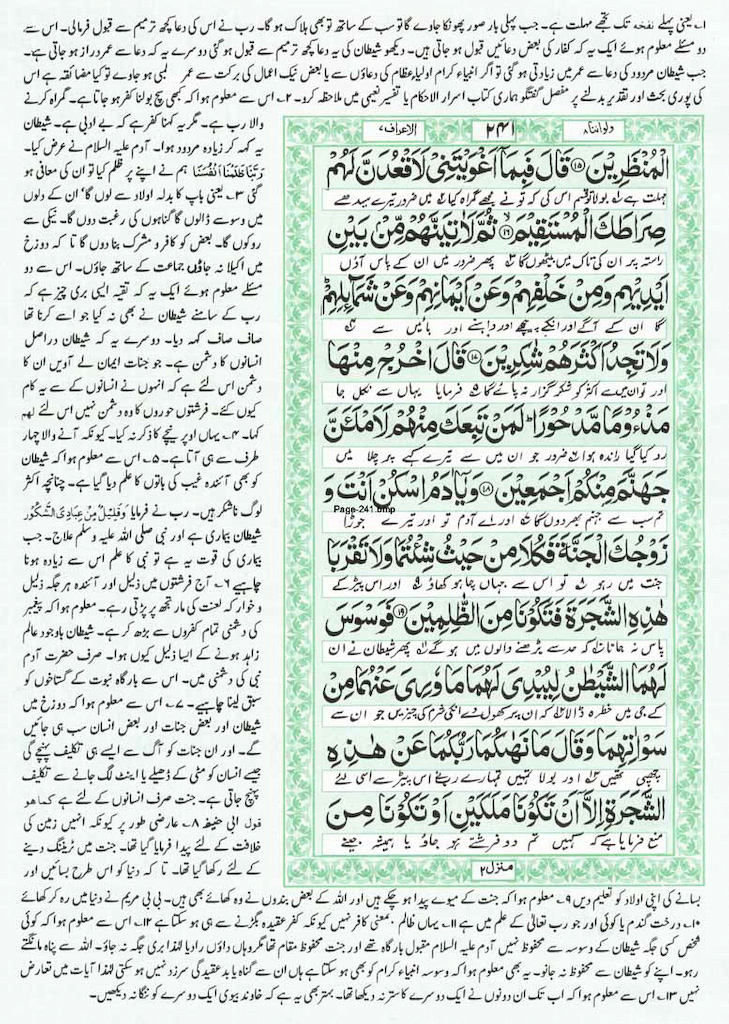 ۱۔ یعنی پہلے نفخہ تک تجھے مہلت ہے۔ جب پہلی بار صور پھونکا جاوے گا تو سب کے ساتھ تو بھی ہلاک ہو گا۔ رب نے اس کی دعا کچھ ترمیم سے قبول فرمالی۔ اس سے
دو مسئلے معلوم ہوئے ایک یہ کہ کفار کی بعض دعائیں قبول ہو جاتی ہیں۔ دیکھو شیطان کی یہ دعا کچھ ترمیم سے قبول ہو گئی دوسرے یہ کہ دعا سے عمر دراز ہو جاتی ہے۔
جب شیطان مردود کی دعا سے عمر میں زیادتی ہو گئی تو اگر انبیاء کرام اولیاء عظام کی دعاؤں سے یا بعض نیک اعمال کی برکت سے عمر لمبی ہو جاوے تو کیا مضائقہ ہے اس
کی پوری بحث اور تقدیر بدلنے پر مفصل گفتگو ہماری کتاب اسرار الاحکام یا تفسیر نعیمی میں ملاحظہ کرو۔ ۲۔ اس سے معلوم ہوا کہ کبھی سچ بولنا کفر ہو جاتا ہے۔ گمراہ کرنے
ولواننا۸
۲۴۱
الاعراف۷
الْمُنْظَرِيْنَ ۝۱۵ قَالَ فَبِمَاۤ اَغْوَيْتَنِىْ لَاَقْعُدَنَّ لَهُمْ
مہلت ہے بولا تو قسم اس کی کہ تو نے مجھے گمراہ کیا میں ضرور تیرے سیدھے
صِرَاطَكَ الْمُسْتَقِيْمَ ۝۱۶ ثُمَّ لَاٰتِيَنَّهُمْ مِّنْۢ بَيْنِ
راستہ پر ان کی تاک میں بیٹھوں گا پھر ضرور میں ان کے پاس آؤں
اَيْدِيْهِمْ وَمِنْ خَلْفِهِمْ وَعَنْ اَيْمَانِهِمْ وَعَنْ شَمَآئِلِهِمْ
گا ان کے آگے اور انکے پیچھے اور داہنے اور بائیں سے
وَلَا تَجِدُ اَكْثَرَهُمْ شٰكِرِيْنَ ۝۱۷ قَالَ اخْرُجْ مِنْهَا
اور تو ان میں سے اکثر کو شکر گزار نہ پائے گا فرمایا یہاں سے نکل جا
مَذْءُوْمًا مَّدْحُوْرًا لَمَنْ تَبِعَكَ مِنْهُمْ لَاَمْلَئَنَّ
رد کیا گیا راندہ ہوا ضرور جو ان میں سے تیرے کہے پر چلا میں
جَهَنَّمَ مِنْكُمْ اَجْمَعِيْنَ ۝۱۸ وَيٰۤاٰدَمُ اسْكُنْ اَنْتَ وَ
تم سب سے جہنم بھر دوں گا اور اے آدم تو اور تیرے جوڑا
Page-241.bmp
زَوْجُكَ الْجَنَّةَ فَكُلَا مِنْ حَيْثُ شِئْتُمَا وَلَا تَقْرَبَا
جنت میں رہو تو اس سے جہاں چاہو کھاؤ اور اس پیڑ کے
هٰذِهِ الشَّجَرَةَ فَتَكُوْنَا مِنَ الظّٰلِمِيْنَ ۝۱۹ فَوَسْوَسَ
پاس نہ جانا کہ حد سے بڑھنے والوں میں ہو گے پھر شیطان نے ان
لَهُمَا الشَّيْطٰنُ لِيُبْدِىَ لَهُمَا مَا وٗرِىَ عَنْهُمَا مِنْ
کے جی میں خطرہ ڈالا کہ ان پر کھول دے انکی شرم کی چیزیں جو ان سے
سَوْاٰتِهِمَا وَقَالَ مَا نَهٰىكُمَا رَبُّكُمَا عَنْ هٰذِهِ
چھپی تھیں اور بولا تمہیں تمہارے رب نے اس پیڑ سے اسی لئے
الشَّجَرَةِ اِلَّاۤ اَنْ تَكُوْنَا مَلَكَيْنِ اَوْ تَكُوْنَا مِنَ
منع فرمایا ہے کہ کہیں تم دو فرشتے ہو جاؤ یا ہمیشہ جینے
منزل۲
والا رب ہے۔ مگر یہ کہنا کفر ہے کہ بے ادبی ہے۔ شیطان
یہ کہہ کر زیادہ مردود ہوا۔ آدم علیہ السلام نے عرض کیا۔
رَبَّنَا ظَلَمْنَا اَنْفُسَنَا ہم نے اپنے پر ظلم کیا تو ان کی معافی ہو
گئی ۳۔ یعنی باپ کا بدلہ اولاد سے لوں گا۔ ان کے دلوں
میں وسوسے ڈالوں گا گناہوں کی رغبت دوں گا۔ نیکی سے
روکوں گا۔ بعض کو کافر و مشرک بنا دوں گا تا کہ دوزخ
میں اکیلا نہ جاؤں جماعت کے ساتھ جاؤں۔ اس سے دو
مسئلے معلوم ہوئے ایک یہ کہ تقیہ ایسی بری چیز ہے کہ
رب کے سامنے شیطان نے بھی نہ کیا جو اسے کرنا تھا
صاف صاف کہہ دیا۔ دوسرے یہ کہ شیطان دراصل
انسانوں کا دشمن ہے۔ جو جنات ایمان لے آویں ان کا
دشمن اس لئے ہے کہ انہوں نے انسانوں کے سے یہ کام
کیوں کئے۔ فرشتوں حوروں کا وہ دشمن نہیں اس لئے لھم
کہا۔ ۴۔ یہاں اوپر نیچے کا ذکر نہ کیا۔ کیونکہ آنے والا چہار
طرف سے ہی آتا ہے۔ ۵۔ اس سے معلوم ہوا کہ شیطان
کو بھی آئندہ غیب کی باتوں کا علم دیا گیا ہے۔ چنانچہ اکثر
لوگ ناشکر ہیں۔ رب نے فرمایا وَقَلِيْلٌ مِّنْ عِبَادِىَ الشَّكُوْرُ
شیطان بیماری ہے اور نبی صلی اللہ علیہ وسلم علاج۔ جب
بیماری کی قوت یہ ہے تو نبی کا علم اس سے زیادہ ہونا
چاہیے ۶۔ آج فرشتوں میں ذلیل اور آئندہ ہر جگہ ذلیل
و خوار کہ لعنت کی مار تجھ پر پڑتی رہے۔ معلوم ہوا کہ پیغمبر
کی دشمنی تمام کفروں سے بڑھ کر ہے۔ شیطان باوجود عالم
زاہد ہونے کے ایسا ذلیل کیوں ہوا۔ صرف حضرت آدم
نبی کی دشمنی میں۔ اس سے بارگاہ نبوت کے گستاخوں کو
سبق لینا چاہیے۔ ۷۔ اس سے معلوم ہوا کہ دوزخ میں
شیطان اور بعض جنات اور بعض انسان سب ہی جائیں
گے۔ اور ان جنات کو آگ سے ایسے ہی تکلیف پہنچے گی
جیسے انسان کو مٹی کے ڈھیلے یا اینٹ لگ جانے سے تکلیف
پہنچ جاتی ہے۔ جنت صرف انسانوں کے لئے ہے کما ھو
قول ابی حنیفہ ۸۔ عارضی طور پر کیونکہ انہیں زمین کی
خلافت کے لئے پیدا فرمایا گیا تھا۔ جنت میں ٹریننگ دینے
کے لئے رکھا گیا تھا۔ تا کہ دنیا کو اس طرح بسائیں اور
بسانے کی اپنی اولاد کو تعلیم دیں ۹۔ معلوم ہوا کہ جنت کے میوے پیدا ہو چکے ہیں اور اللہ کے بعض بندوں نے وہ کھائے بھی ہیں۔ بی بی مریم نے دنیا میں رہ کر کھائے
۱۰۔ درخت گندم یا کوئی اور جو رب تعالیٰ کے علم میں ہے ۱۱۔ یہاں ظالم بمعنی کافر نہیں کیونکہ کفر عقیدہ بگڑنے سے ہی ہو سکتا ہے ۱۲۔ اس سے معلوم ہوا کہ کوئی
شخص کسی جگہ شیطان کے وسوسہ سے محفوظ نہیں آدم علیہ السلام مقبول بارگاہ تھے اور جنت محفوظ مقام تھا مگر وہاں داؤں مار دیا لہٰذا بری جگہ نہ جاؤ۔ اللہ سے پناہ مانگتے
رہو۔ اپنے کو شیطان سے محفوظ نہ جانو۔ یہ بھی معلوم ہوا کہ وسوسہ انبیاء کرام کو بھی ہو سکتا ہے ہاں ان سے گناہ یا بد عقیدگی سرزد نہیں ہو سکتی لہٰذا آیات میں تعارض
نہیں ۱۳۔ اس سے معلوم ہوا کہ اب تک ان دونوں نے ایک دوسرے کا ستر نہ دیکھا تھا۔ بہتر بھی یہ ہے کہ خاوند بیوی ایک دوسرے کو ننگا نہ دیکھیں۔